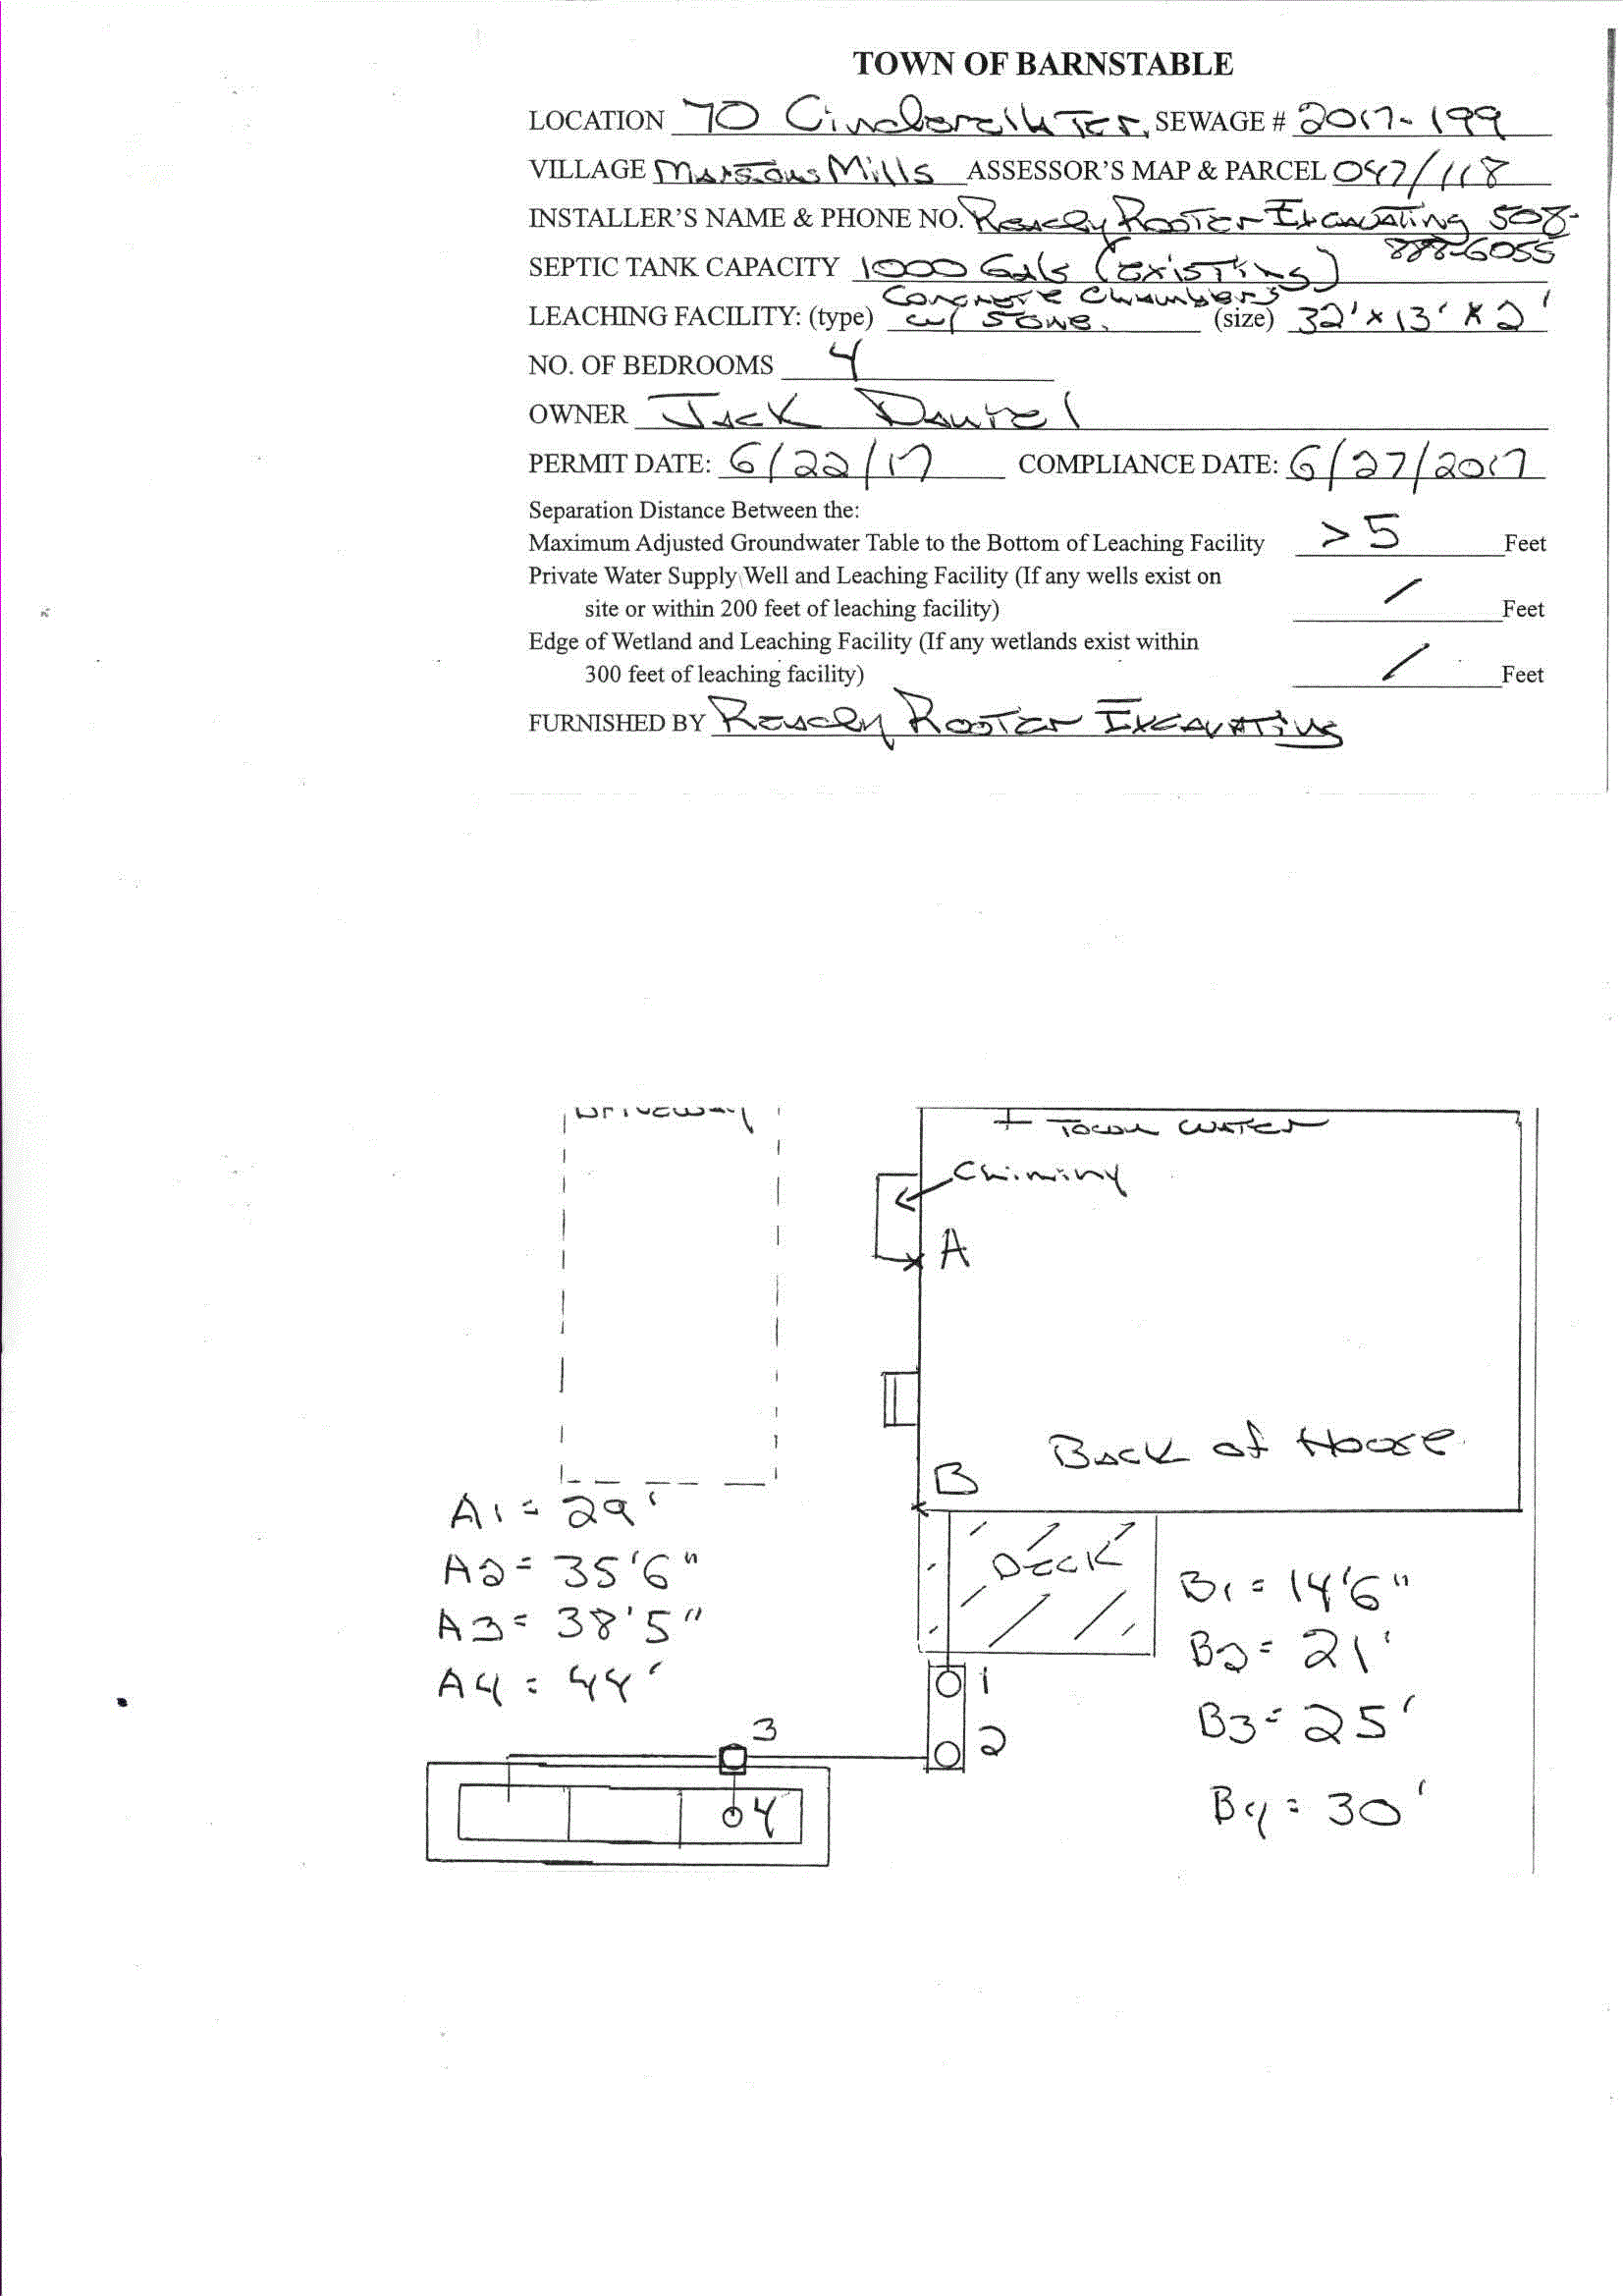 TOWN OF BARNSTABLE
LOCATION 70 Cinderella Ter, SEWAGE # 2017-199
VILLAGE Marstons Mills ASSESSOR'S MAP & PARCEL 047/118
INSTALLER'S NAME & PHONE NO. Ready Rooter Excavating 508-
888-6055
SEPTIC TANK CAPACITY 1000 Gals (existing)
Concrete Chambers
LEACHING FACILITY: (type) w/ stone. (size) 32' x 13' x 2'
NO. OF BEDROOMS 4
OWNER Jack Daniel
PERMIT DATE: 6/22/17 COMPLIANCE DATE: 6/27/2017
Separation Distance Between the:
Maximum Adjusted Groundwater Table to the Bottom of Leaching Facility > 5 Feet
Private Water Supply Well and Leaching Facility (If any wells exist on
site or within 200 feet of leaching facility) / Feet
Edge of Wetland and Leaching Facility (If any wetlands exist within
300 feet of leaching facility) / Feet
FURNISHED BY Ready Rooter Excavating
Driveway
+ Town Water
Chiminy
A
Back of House
B
Deck
A1 = 29'
A2 = 35'6"
A3 = 38'5"
A4 = 44'
B1 = 14'6"
B2 = 21'
B3 = 25'
B4 = 30'
1
2
3
4